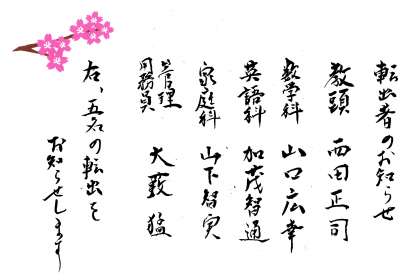 転出者のお知らせ
教頭 西田正司
数学科 山口広幸
英語科 加茂智通
家庭科 山下智実
管理用務員 大薮猛
右、五名の転出を
お知らせします